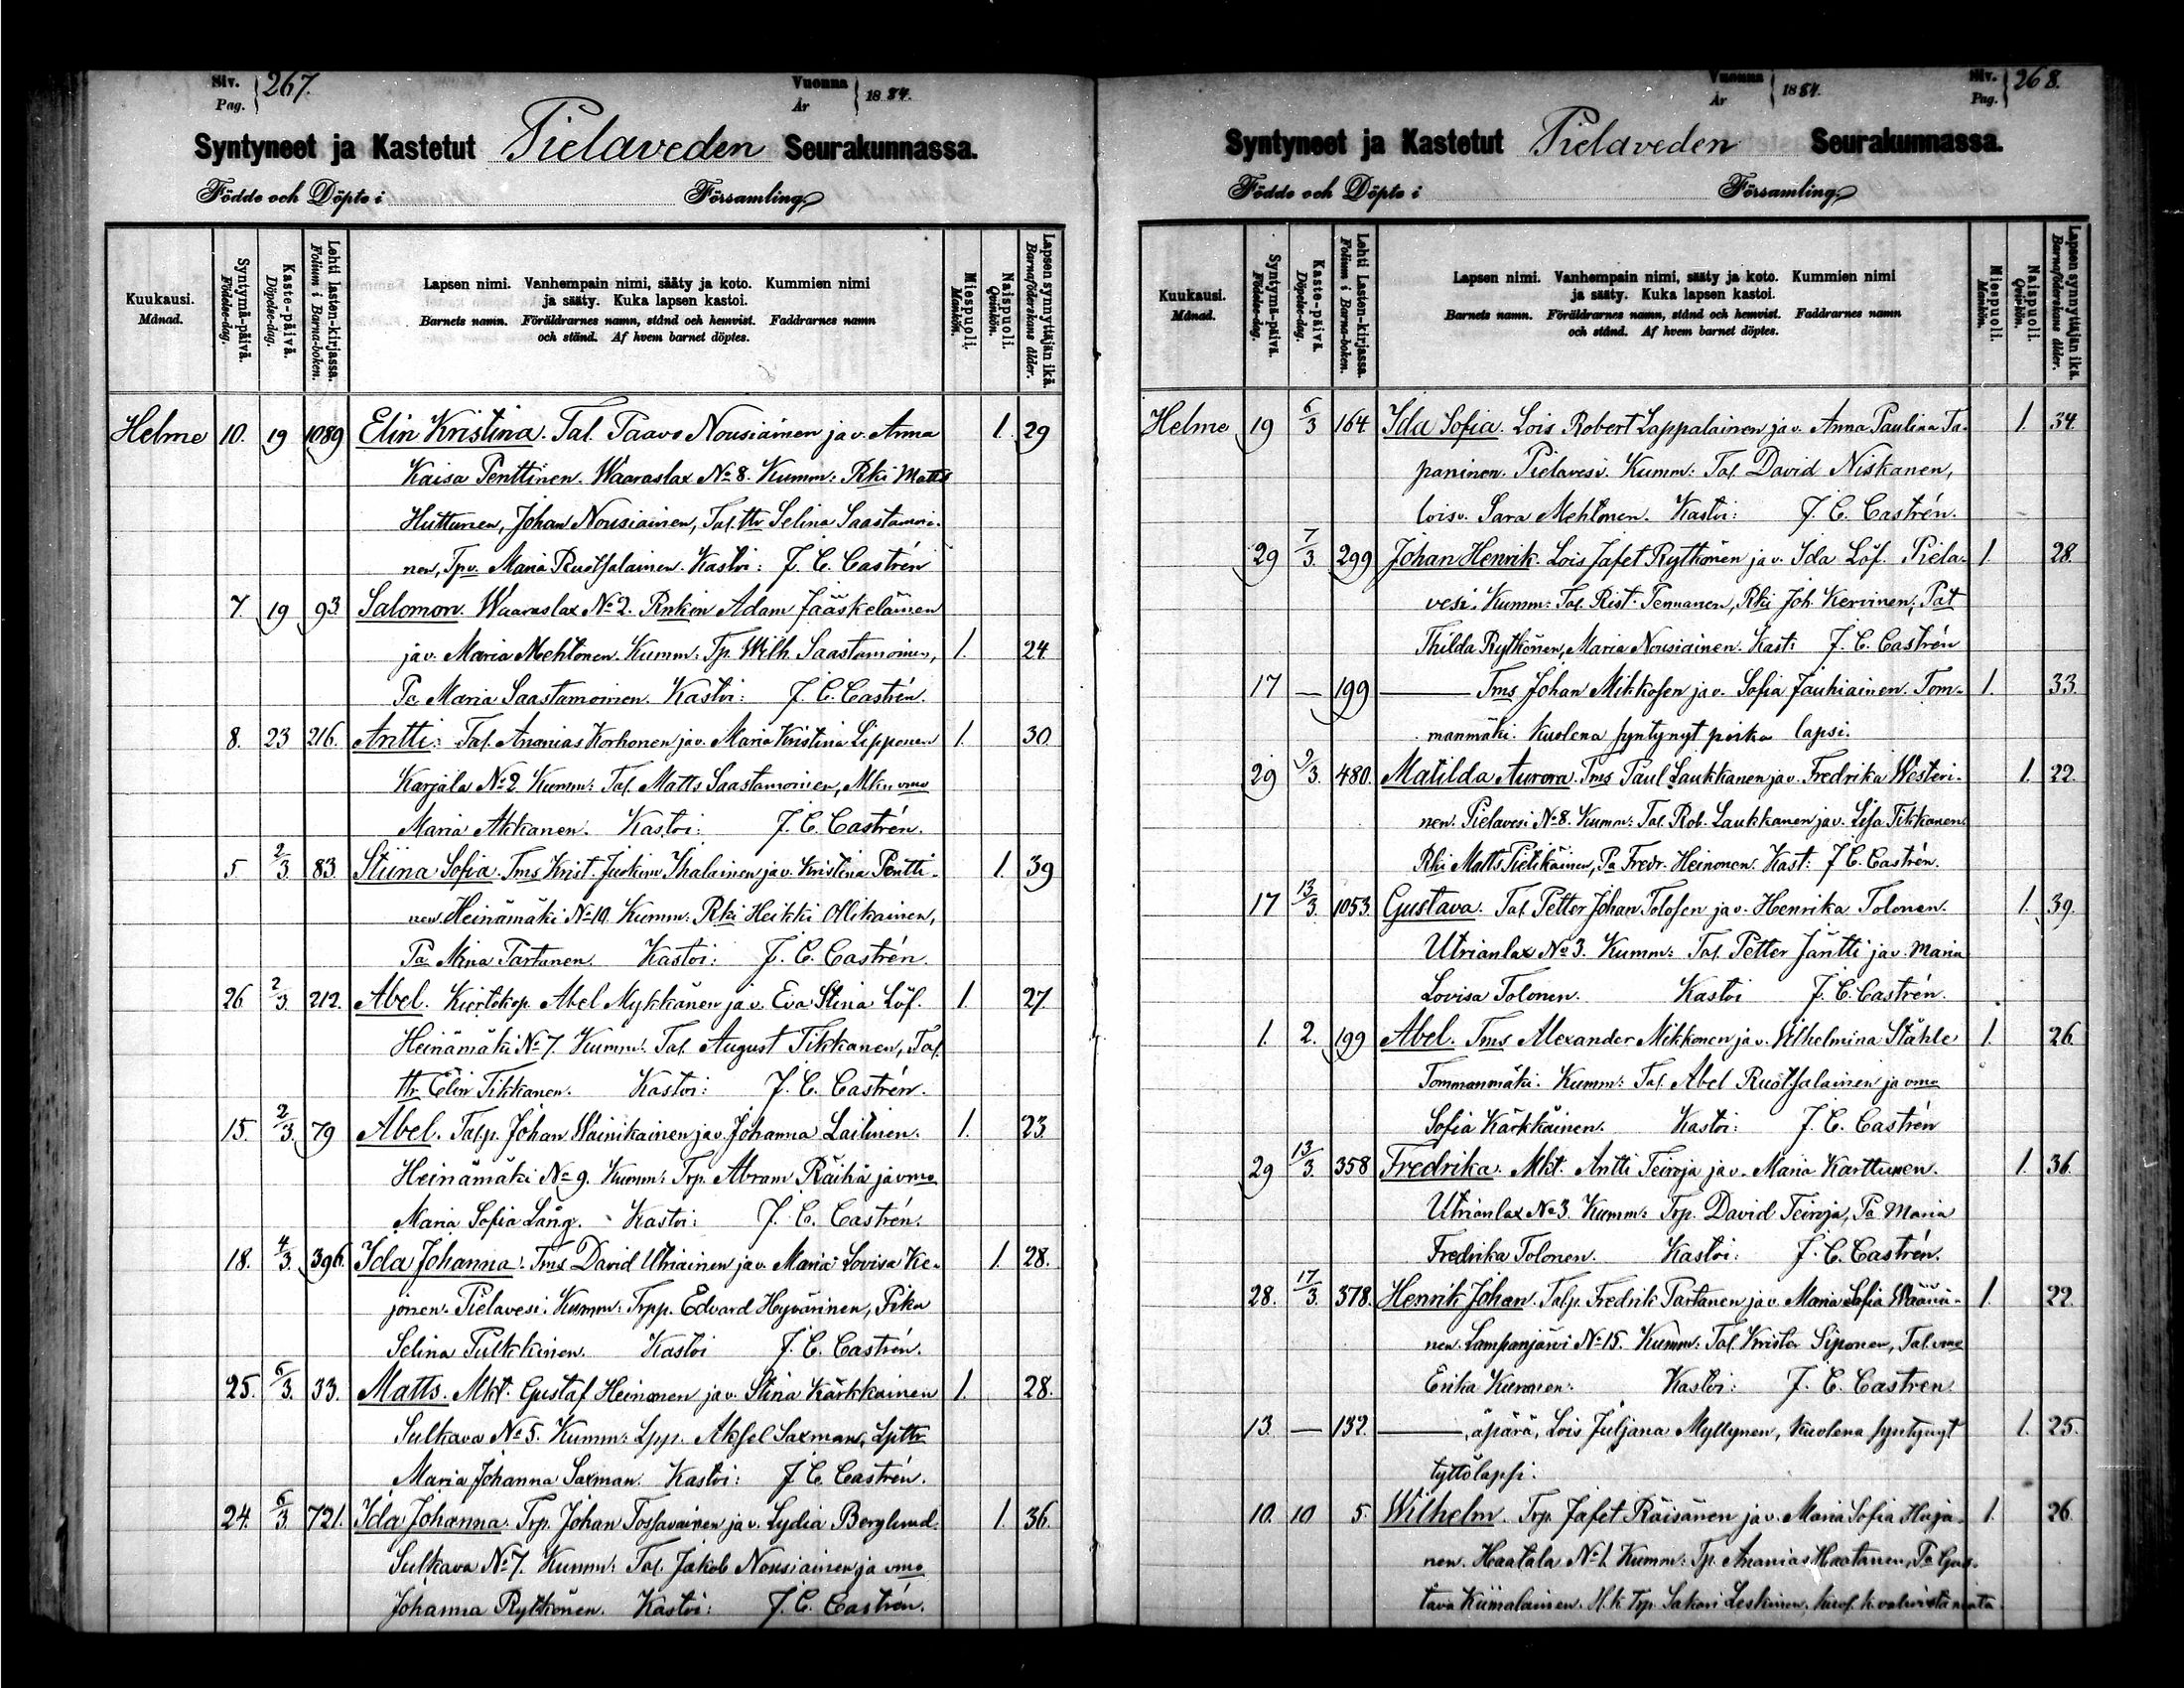 Siv. Pag. 267.
Vuonna År 1884.
Syntyneet ja Kastetut Pielaveden Seurakunnassa.
Födde och Döpte i Församling
Kuukausi. Månad.
Syntymä-päivä. Födelse-dag.
Kaste-päivä. Döpelse-dag.
Lehti lasten-kirjassa. Folium i Barna-boken.
Lapsen nimi. Vanhempain nimi, sääty ja koto. Kummien nimi
ja sääty. Kuka lapsen kastoi.
Barnets namn. Föräldrarnes namn, stånd och hemvist. Faddrarnes namn
och stånd. Af hvem barnet döptes.
Miespuoli. Mankön.
Naispuoli. Qvinkön.
Lapsen synnyttäjän ikä. Barnaföderskans ålder.
Helme 10. 19 1089 Elin Kristina. Tal. Paavo Nousiainen ja v. Anna 1. 29
Kaisa Penttinen. Waaraslax No 8. Kumm: Rki Matts
Huttunen, Johan Nousiainen, Tal. ttr Selina Saastamoi-
nen, Tpv. Maria Ruotsalainen. Kastoi: J. C. Castrén
7. 19 93 Salomon. Waaraslax No 2. Rnkin Adam Jääskeläinen
ja v. Maria Mehtonen. Kumm: Tp. Wilh. Saastamoinen, 1. 24
Pa Maria Saastamoinen. Kastoi: J. C. Castrén.
8. 23 216. Antti: Tal. Ananias Korhonen ja v. Maria Kristina Lipponen 1. 30
Karjala No 2 Kumm: Tal. Matts Saastamoinen, Mkn vmo
Maria Akkanen. Kastoi: J. C. Castrén.
5 2/3 83 Stiina Sofia. Tms Krist. Juokim Ihalainen ja v. Kristina Pentti- 1. 39
nen Heinämäki No 10. Kumm: Rki Heikki Ollikainen,
Pa Mina Tartanen. Kastoi: J. C. Castrén.
26 2/3. 212. Abel. Kiertokop. Abel Mykkänen ja v. Eva Stina Löf. 1. 27
Heinämäki No 7. Kumm: Tal. August Tikkanen, Tal.
ttr Elin Tikkanen. Kastoi: J. C. Castrén.
15. 2/3. 79 Abel. Tal.p. Johan Wäinikainen ja v. Johanna Laitinen. 1. 23
Heinämäki No 9. Kumm: Trp. Abram Räihä ja vmo
Maria Sofia Lång. Kastoi: J. C. Castrén.
18. 4/3. 396. Ida Johanna: Tms David Utriainen ja v. Maria Lovisa Ke- 1. 28.
jonen. Pielavesi. Kumm: Trpp. Edvard Hyvärinen, Pika
Selina Pulkkinen Kastoi J. C. Castrén.
25. 6/3. 33. Matts. Mkt. Gustaf Heinonen ja v. Stina Kärkkainen 1. 28.
Sulkava No 5. Kumm: Lpp. Aksel Saxman, Lpttr
Maria Johanna Saxman. Kastoi: J. C. Castrén.
24. 6/3. 721. Ida Johanna. Trp. Johan Tossavainen ja v. Lydia Berglund. 1. 36.
Sulkava No 7. Kumm: Tal. Jakob Nousiainen ja vmo
Johanna Rytkönen. Kastoi: J. C. Castrén.
Vuonna År 1884.
Siv. Pag. 268.
Syntyneet ja Kastetut Pielaveden Seurakunnassa.
Födde och Döpte i Församling
Kuukausi. Månad.
Syntymä-päivä. Födelse-dag.
Kaste-päivä. Döpelse-dag.
Lehti Lasten-kirjassa. Folium i Barna-boken.
Lapsen nimi. Vanhempain nimi, sääty ja koto. Kummien nimi
ja sääty. Kuka lapsen kastoi.
Barnets namn. Föräldrarnes namn, stånd och hemvist. Faddrarnes namn
och stånd. Af hvem barnet döptes.
Miespuoli. Mankön.
Naispuoli. Qvinkön.
Lapsen synnyttäjän ikä. Barnaföderskans ålder.
Helme 19 6/3 164. Ida Sofia. Lois Robert Lappalainen ja v. Anna Paulina Ta- 1. 34.
paninen. Pielavesi. Kumm: Tal. David Niskanen,
loisv. Sara Mehtonen. Kastoi: J. C. Castrén.
29 7/3. 299 Johan Henrik. Lois Jafet Rytkönen ja v. Ida Löf. Piela- 1. 28.
vesi. Kumm: Tal. Rist. Tennanen, Rki Joh. Kervinen, Pat
Thilda Rytkönen, Maria Nousiainen. Kast: J. C. Castrén
17 — 199 — Tms Johan Mikkosen ja v. Sofia Jauhiainen. Tom- 1. 33.
manmäki. Kuolena syntynyt poika lapsi.
29 9/3. 480. Matilda Aurora. Tms Paul Laukkanen ja v. Fredrika Westeri- 1. 22.
nen. Pielavesi No 8. Kumm: Tal. Rob. Laukkanen ja v. Lisa Tikkanen.
Rki Matts Pietikäinen, Pa Fredr. Heinonen. Kast: J. C. Castrén.
17 13/3. 1053. Gustava. Tal. Petter Johan Tolosen ja v. Henrika Tolonen. 1. 39.
Utrianlax No 3. Kumm: Tal. Petter Jäntti ja v. Maria
Lovisa Tolonen. Kastoi J. C. Castrén.
1. 2. 199 Abel. Tms Alexander Mikkonen ja v. Wilhelmina Ståhle 1. 26.
Tommanmäki. Kumm: Tal. Abel Ruotsalainen ja vmo
Sofia Kärkkäinen. Kastoi: J. C. Castrén
29 13/3. 358 Fredrika. Mkt. Antti Teiroja ja v. Maria Karttunen. 1. 36.
Utrianlax No 3. Kumm: Trp. David Teiroja, Pa Maria
Fredrika Tolonen. Kastoi: J. C. Castrén.
28. 17/3. 378. Henrik Johan. Tal.p. Fredrik Tartanen ja v. Maria Sofia Wääni- 1. 22.
nen. Lampaanjärvi No 15. Kumm: Tal. Krister Siponen, Tal. vmo
Erika Kumnen. Kastoi: J. C. Castren
13. — 132. —, äpärä, Lois Juljana Myllynen, Kuolena syntynyt 1. 25.
tyttölapsi.
10. 10 5. Wilhelm. Trp. Jafet Räisänen ja v. Maria Sofia Huja- 1. 26.
nen. Haatala No 1. Kumm: Tp. Ananias Haatanen, Pa Gus-
tava Kiimalainen. H. k. Trp. Sakari Leskinen, kuol. k. vahvistamata